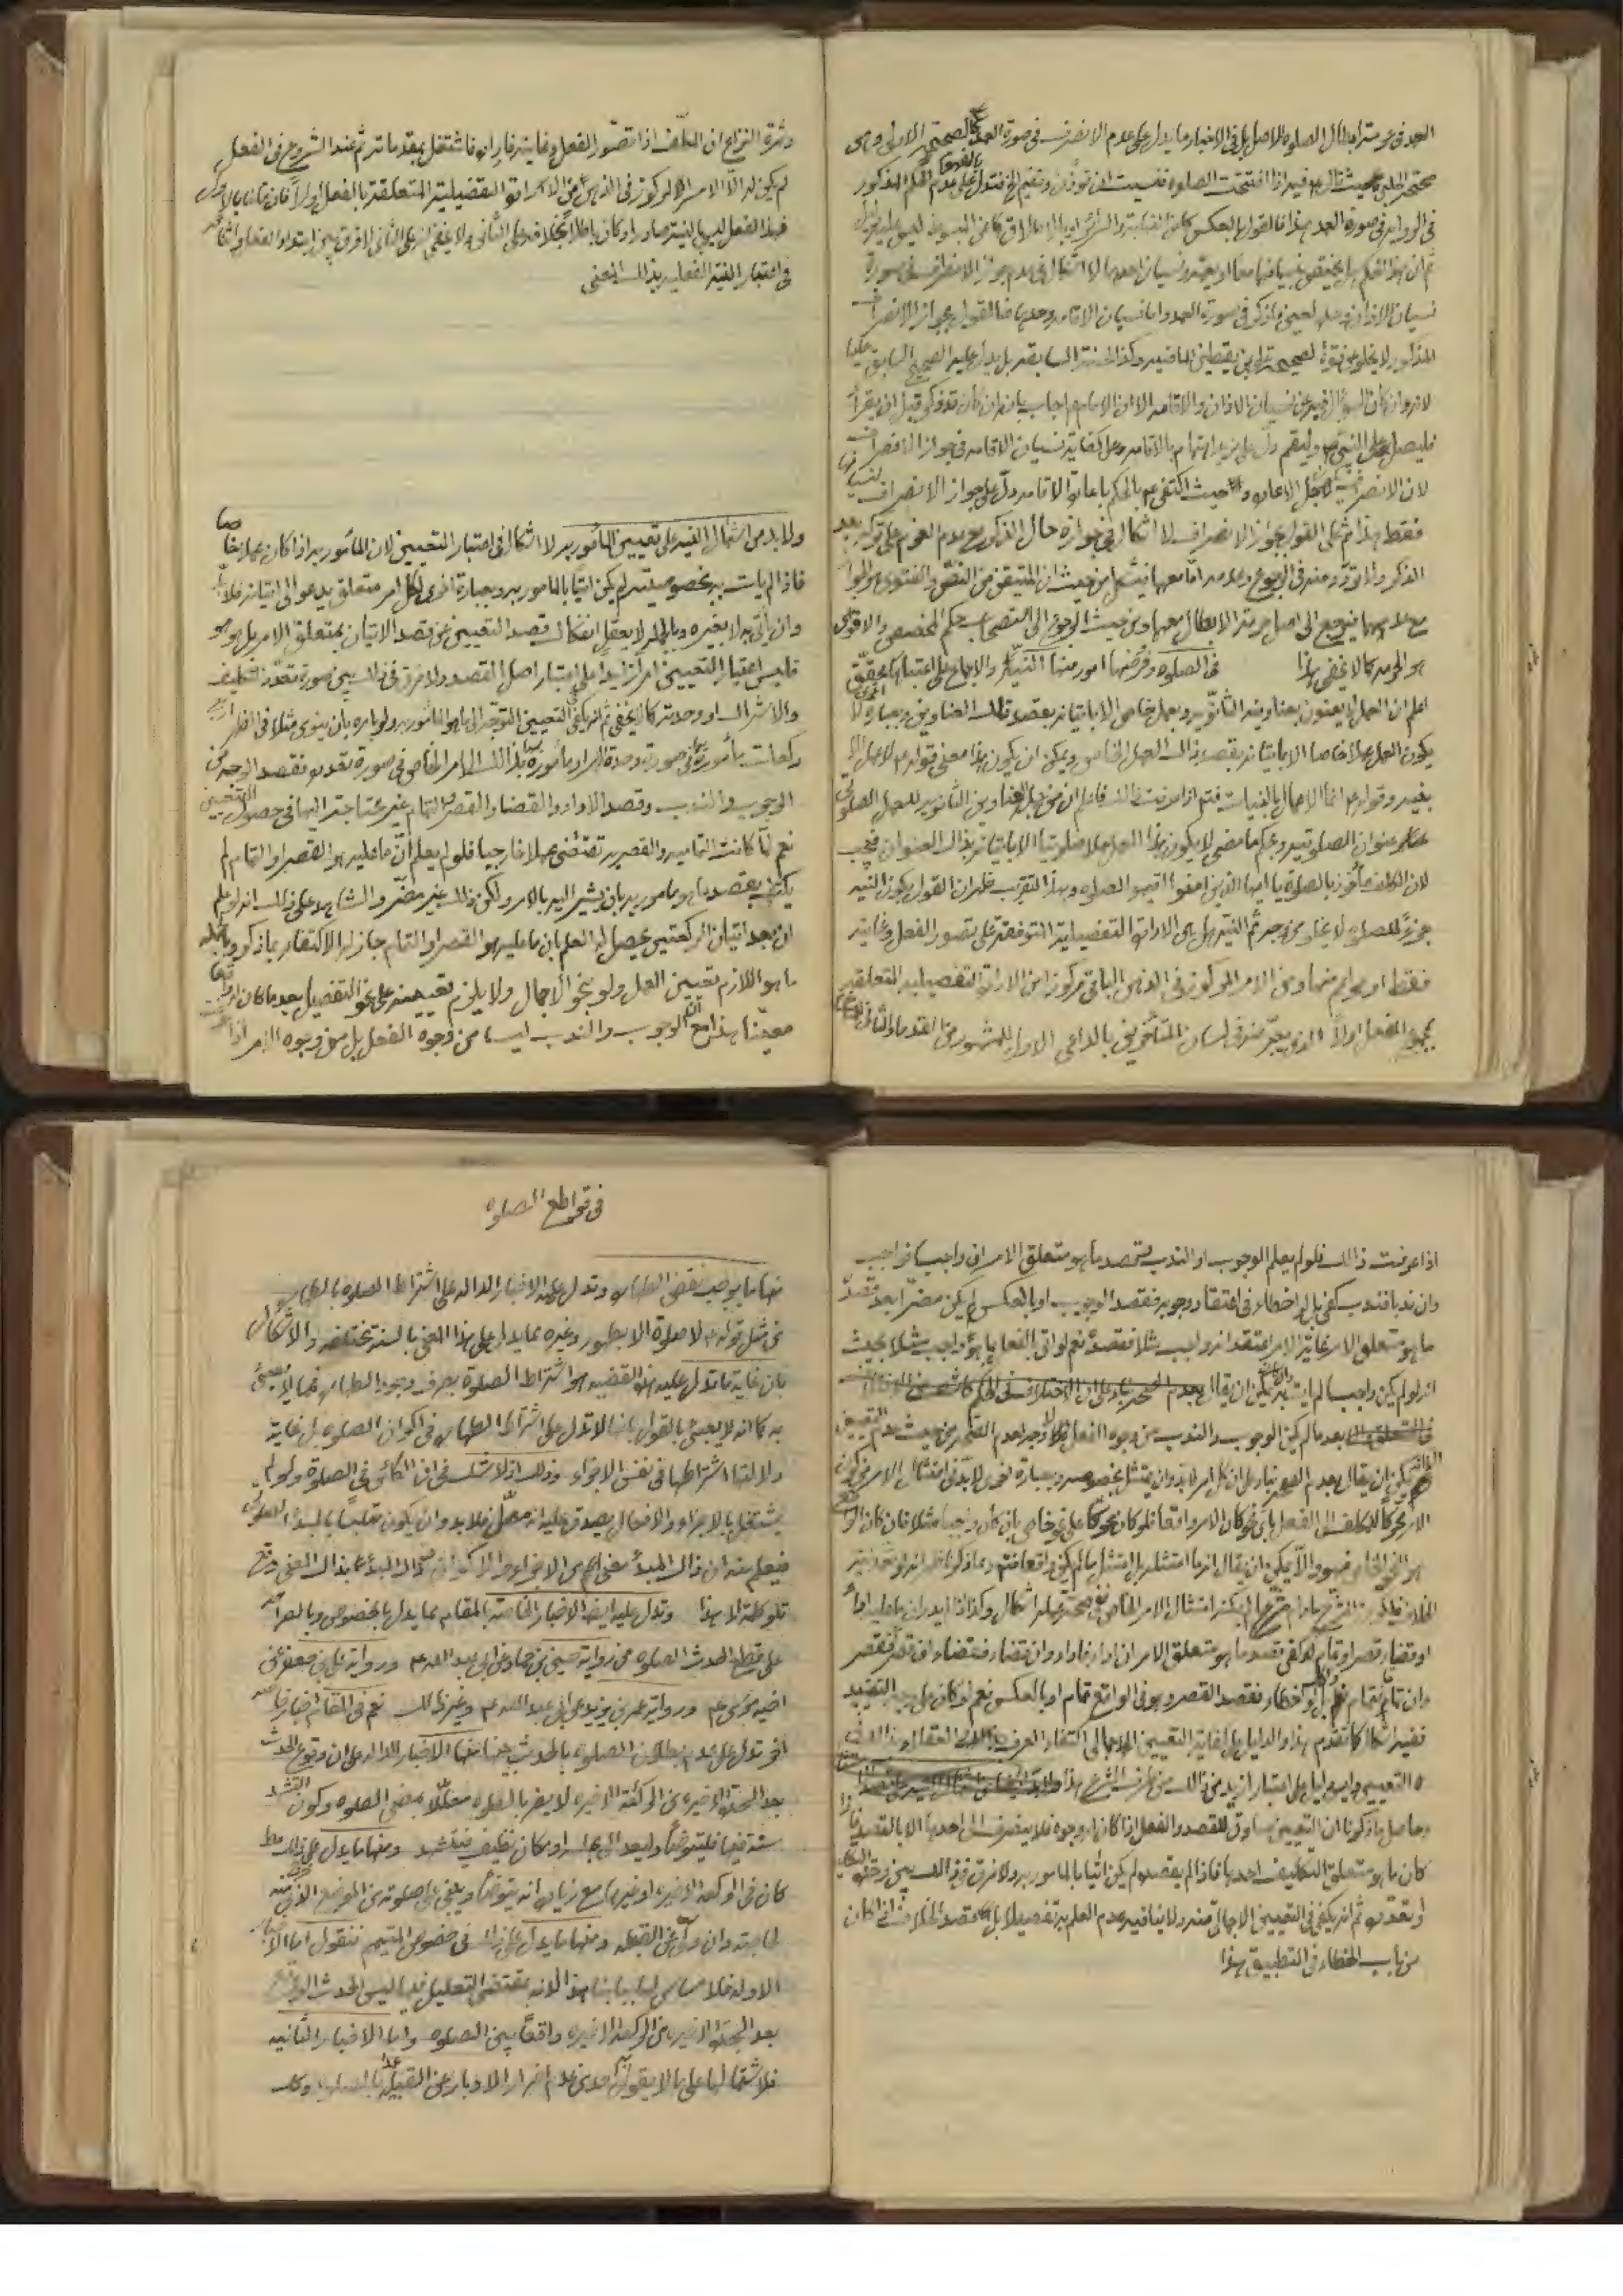 العمد في حرمة ابطال الصلوة للاصل بل في الاخبار ما يدل على عدم الانصراف في صورة العمد كالصحيحة الاولى وهي
صحيحة الحلبي حيث قال فيه اذا افتتحت الصلوة فنسيت ان تؤذن وتقيم الخ فتدل بالمفهوم على عدم الحكم المذكور
في الرواية في صورة العمد هذا فالقول بالعكس كما عن النهاية والسرائر او بالاطلاق كما عن المبسوط ليس عليه
ثم ان هذا الحكم هل يختص بنسيانهما معا او يعم نسيان احدهما لا اشكال في عدم جواز الانصراف في صورة
نسيان الاذان وحده لعين ما ذكر في صورة العمد واما نسيان الاقامة وحدها فالقول بجواز الانصراف
المذكور لا يخلو عن قوة لصحيحة علي بن يقطين الماضية وكذا الحسنة السابقة بل يدل عليه الصحيح السابق
لانه وان كان السؤال فيه عن نسيان الاذان والاقامة الا ان الامام اجاب بانه ان كان قد ذكر قبل ان يقرأ
فليصل على النبي ص وليقم دل على مزيد اهتمام بالاقامة وعلى كفاية نسيان الاقامة في جواز الانصراف
لان الانصراف لاجل الاعادة حيث اكتفى ع بالحكم باعادة الاقامة دل على جواز الانصراف لنسيانها
فقط هذا ثم على القول بجواز الانصراف لا اشكال في جوازه حال الذكر مع عدم العزم على تركه بعد
الذكر ولا تردد منه في الرجوع وعدمه اما معهما فيشكل من حيث ان المتيقن من النص والفتوى هو الجواز
مع عدمهما فيرجع الى اصل حرمة الابطال معهما ومن حيث الرجوع الى استصحاب حكم المخصص والاقوى
هو الحرمة كما لا يخفى هذا في الصلوة وفروضها امور منها النية والاجماع على اعتبارها محقق
اعلم ان العمل لا يعنون بعناوينه الثانوية وبعمل خاص الا باتيانه بقصد تلك العناوين وبعبارة اخرى لا
يكون العمل عملا خاصا الا باتيانه بقصد ذلك العمل الخاص ويمكن ان يكون هذا معنى قوله ع لا عمل الا
بنية وقوله ع انما الاعمال بالنيات فتم اذا عرفت ذلك فاعلم ان من قبيل العناوين الثانوية للعمل الصلوتي
عنوان الصلوتية وبحكم ما مضى لا يكون هذا العمل عملا صلوتيا الا باتيانه بذلك العنوان فيجب
لان المكلف مأمور بالصلوة يا ايها الذين امنوا اقيموا الصلوة وبهذا التقريب ظهر ان القول بكون النية
جزء للصلوة لا يخلو من وجه ثم النية هل هي الارادة التفصيلية المتوقفة على تصور الفعل وغايته
فقط او هو اعم منها ومن الامر المركوز في الذهن الباقي مركوزا من الارادة التفصيلية المتعلقة
بمجموع الفعل اولا الذي يعبر عنه في لسان المتأخرين بالداعي الاول للمشهور من القدماء والثاني
وثمرة النزاع ان المكلف اذا تصور الفعل وغايته فاراده فاشتغل بمقدماته ثم عند الشروع في الفعل
لم يكن له الا الامر المركوز في الذهن من الارادة التفصيلية المتعلقة بالفعل اولا فان قلنا بالاول
فهذا الفعل ليس بالنية صادرا وكان باطلا بخلافه على الثاني ولا يخفى انه على الثاني لا فرق بين ابتداء الفعل واثنائه
في اعتبار النية الفعلية بذلك المعنى
ولا بد من اشتمال النية على تعيين المأمور به لا اشكال في اعتبار التعيين لان المأمور به اذا كان عملا خاصا
فاذا لم يأت به بخصوصيته لم يكن اتيا بالمأمور به وبعبارة اخرى لكل امر متعلق يدعو الى اتيانه فلا بد
وان يأتي به لا بغيره وبالجملة لا يعقل انفكاك قصد التعيين عن قصد الاتيان بمتعلق الامر بل هو هو
فليس اعتبار التعيين امرا زائدا على اعتبار اصل القصد ولا فرق في ذلك بين صورة تعدد التكليف
والاشتراك او وحدته كما لا يخفى ثم انه يكفي في التعيين التوجه الى ما هو المأمور به ولو باشارة بان ينوي مثلا في الظهر اربع
ركعات مأمور بها في صورة وحدة المراد بها مأمورة بها بذلك الامر الخاص في صورة تعدده فقصد الوجه من
الوجوب والندب وقصد الاداء والقضاء والقصر والتمام غير محتاجة اليها في حصول التعيين
نعم لما كانت التمامية والقصرية تقتضي عملا خارجيا فلو لم يعلم ان ما عليه هو القصر او التمام لم
يكتف بقصد ما هو مأمور به بان يشير اليه بالامر ولكن ذلك غير مضر والشاهد على ذلك انه لو علم
ان بعد اتيان الركعتين يحصل له العلم بان ما عليه هو القصر او التمام جاز له الاكتفاء بما ذكر وبالجملة
ما هو اللازم تعيين العمل ولو بنحو الاجمال ولا يلزم تعيينه على نحو التفصيل بعد ما كان واقعا
معينا هذا مع ان الوجوب والندب ليسا من وجوه الفعل بل من وجوه الامر
اذا عرفت ذلك فلو لم يعلم الوجوب او الندب فقصد ما هو متعلق الامر ان واجبا فواجب
وان ندبا فندب كفى بل لو اخطاء في اعتقاد وجوبه فقصد الوجوب او بالعكس لم يكن مضرا بعد قصد
ما هو متعلق الامر غاية الامر اعتقد انه واجب مثلا فقصده نعم لو اتى الفعل بما هو واجب مثلا بحيث
انه لو لم يكن واجبا لما يأت به يمكن ان يقال
بعد ما لم يكن الوجوب والندب من وجوه الفعل لا وجه لعدم الصحة من حيث عدم التعيين
يمكن ان يقال بعدم الصحة بناء على ان كل امر لا بد وان يمتثل بخصوصه وبعبارة اخرى لا بد في امتثال الامر من كون
الامر محركا للمكلف الى الفعل بأي نحو كان الامر واقعا فلو كان محركا على نحو خاص بان كان وجوبيا مثلا فان كان الواقع
هو النحو الخاص فهو والا يمكن ان يقال انه ما امتثله بل امتثل ما لم يكن واقعا فتم
او قضاء قصرا وتماما لو كفى قصد ما هو متعلق الامر ان اداء فاداء وان قضاء فقضاء ان قصر فقصر
وان تمام فتمام نعم لو اخطاء فقصد القصر وهو في الواقع تمام او بالعكس نعم لو كان على وجه التقييد
ففيه اشكال كما تقدم هذا والدليل على كفاية التعيين الاجمالي اكتفاء العرف والعقلاء
التعيين وليس دليل على اعتبار ازيد من ذلك من طرف الشرع هذا
وحاصل ما ذكرنا ان التعيين مساوق للقصد والفعل اذا كان له وجوه فلا ينصرف الى احدها الا بالقصد فاذا
كان ما هو متعلق التكليف احدها فاذا لم يقصد لم يكن اتيا بالمأمور به ولا فرق في ذلك بين وحدة التكليف
او تعدده ثم انه يكفي في التعيين الاجمالي منه ولا ينافيه عدم العلم به تفصيلا بل قصد الخلاف اذا كان
من باب الخطاء في التطبيق هذا
في قواطع الصلوة
منها ما يوجب نقض الطهارة وتدل عليه الاخبار الدالة على اشتراط الصلوة بالطهارة
من مثل قوله ع لا صلوة الا بطهور وغيره مما يدل على هذا المعنى بالسنة مختلفة والاشكال
بان غاية ما تدل عليه هذه القضية هو اشتراط الصلوة بصرف وجود الطهارة مما لا يعبئ
به كما انه لا يعبئ بالقول بانها لا تدل على اشتراط الطهارة في اكوان الصلوة بل غاية
دلالتها اشتراطها في نفس الاجزاء وذلك انه لا شك في ان الكائن في الصلوة ولو لم
يشتغل بالاجزاء والافعال يصدق عليه انه مصل فلا بد وان يكون متلبسا بالمبدء الصلوتي
فيعلم منه ان ذلك المبدأ معنى اعم من الاجزاء والاكوان
هذا وتدل عليه ايضا الاخبار الخاصة بالمقام مما يدل بالخصوص وبالصراحة
على قطع الحدث الصلوة من رواية حسين بن حماد عن ابي عبد الله ع ورواية علي بن جعفر عن
اخيه موسى ع ورواية عمر بن يزيد عن ابي عبد الله ع وغير ذلك نعم في المقام اخبار خاصة
اخر تدل على عدم بطلان الصلوة بالحدث فيها منها الاخبار الدالة على ان وقوع الحدث
بعد السجدة الاخيرة من الركعة الاخيرة لا يضر بالصلوة معللا بمضي الصلوة وكون التشهد
سنة فيها فليتوضأ وليعد الى مجلسه او مكان نظيف فيتشهد ومنها ما يدل على ذلك
كان في الركعة الاخيرة او غيرها مع زيادة انه يتوضأ ويبني على صلوته من الموضع الذي
لحاجته وان ولى عن القبلة ومنها ما يدل على ذلك في خصوص المتيمم فنقول اما الاخبار
الاولة فلا مساس لها بما بيناه اذ لانه بمقتضى التعليل فيها ليس الحدث الواقع
بعد السجدة الاخيرة من الركعة الاخيرة واقعا بين الصلوة واما الاخبار الثانية
فلاشتمالها على ما لا يقول به احد من عدم اضرار الادبار عن القبلة عمدا بالصلوة